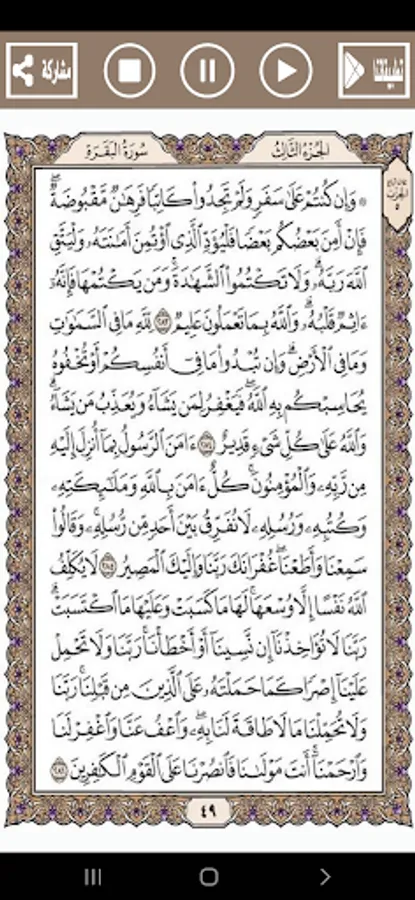 مشاركة
تطبيقاتنا
سُورَةُ البَقَرَةِ
الجُزءُ الثَّالِثُ
۞ وَإِن كُنتُمْ عَلَىٰ سَفَرٍ وَلَمْ تَجِدُوا۟ كَاتِبًا فَرِهَـٰنٌ مَّقْبُوضَةٌ ۖ
فَإِنْ أَمِنَ بَعْضُكُم بَعْضًا فَلْيُؤَدِّ ٱلَّذِى ٱؤْتُمِنَ أَمَـٰنَتَهُۥ وَلْيَتَّقِ
ٱللَّهَ رَبَّهُۥ ۗ وَلَا تَكْتُمُوا۟ ٱلشَّهَـٰدَةَ ۚ وَمَن يَكْتُمْهَا فَإِنَّهُۥٓ
ءَاثِمٌ قَلْبُهُۥ ۗ وَٱللَّهُ بِمَا تَعْمَلُونَ عَلِيمٌ ٢٨٣ لِّلَّهِ مَا فِى ٱلسَّمَـٰوَٰتِ
وَمَا فِى ٱلْأَرْضِ ۗ وَإِن تُبْدُوا۟ مَا فِىٓ أَنفُسِكُمْ أَوْ تُخْفُوهُ
يُحَاسِبْكُم بِهِ ٱللَّهُ ۖ فَيَغْفِرُ لِمَن يَشَآءُ وَيُعَذِّبُ مَن يَشَآءُ ۗ
وَٱللَّهُ عَلَىٰ كُلِّ شَىْءٍ قَدِيرٌ ٢٨٤ ءَامَنَ ٱلرَّسُولُ بِمَآ أُنزِلَ إِلَيْهِ
مِن رَّبِّهِۦ وَٱلْمُؤْمِنُونَ ۚ كُلٌّ ءَامَنَ بِٱللَّهِ وَمَلَـٰٓئِكَتِهِۦ
وَكُتُبِهِۦ وَرُسُلِهِۦ لَا نُفَرِّقُ بَيْنَ أَحَدٍ مِّن رُّسُلِهِۦ ۚ وَقَالُوا۟
سَمِعْنَا وَأَطَعْنَا ۖ غُفْرَانَكَ رَبَّنَا وَإِلَيْكَ ٱلْمَصِيرُ ٢٨٥ لَا يُكَلِّفُ
ٱللَّهُ نَفْسًا إِلَّا وُسْعَهَا ۚ لَهَا مَا كَسَبَتْ وَعَلَيْهَا مَا ٱكْتَسَبَتْ ۗ
رَبَّنَا لَا تُؤَاخِذْنَآ إِن نَّسِينَآ أَوْ أَخْطَأْنَا ۚ رَبَّنَا وَلَا تَحْمِلْ
عَلَيْنَآ إِصْرًا كَمَا حَمَلْتَهُۥ عَلَى ٱلَّذِينَ مِن قَبْلِنَا ۚ رَبَّنَا
وَلَا تُحَمِّلْنَا مَا لَا طَاقَةَ لَنَا بِهِۦ ۖ وَٱعْفُ عَنَّا وَٱغْفِرْ لَنَا
وَٱرْحَمْنَآ ۚ أَنتَ مَوْلَىٰنَا فَٱنصُرْنَا عَلَى ٱلْقَوْمِ ٱلْكَـٰفِرِينَ ٢٨٦
٤٩